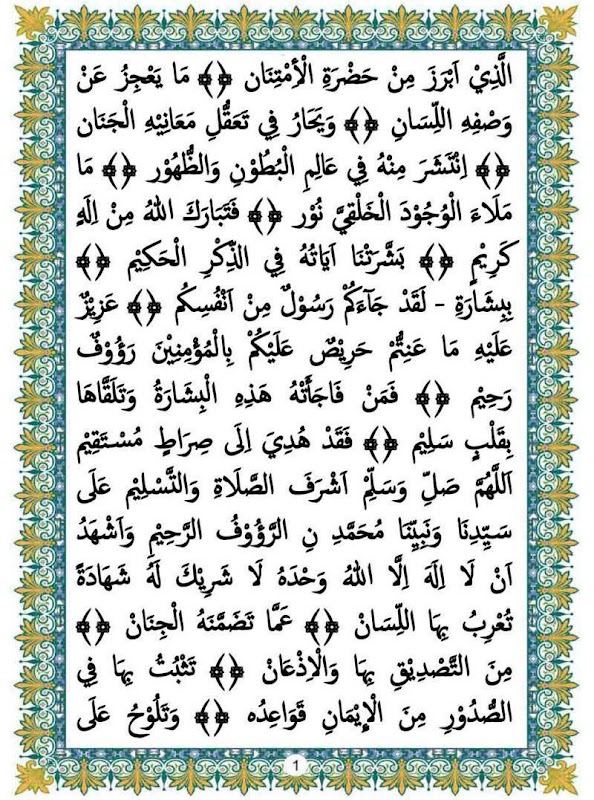 الَّذِيْ اَبْرَزَ مِنْ حَضْرَةِ الْأِمْتِنَان ﴿﴾ مَا يَعْجِزُ عَنْ
وَصْفِهِ اللِّسَانِ ﴿﴾ وَيَحَارُ فِي تَعَقُّلِ مَعَانِيْهِ الْجَنَان
﴿﴾ اِنْتَشَرَ مِنْهُ فِي عَالِمِ الْبُطُوْنِ وَالظُّهُوْر ﴿﴾ مَا
مَلَاءَ الْوُجُوْدَ الْخَلْقِيَّ نُوْر ﴿﴾ فَتَبَارَكَ اللهُ مِنْ اِلَهٍ
كَرِيْمٍ ﴿﴾ بَشَّرَتْنَا اَيَاتُهُ فِي الذِّكْرِ الْحَكِيْمِ ﴿﴾
بِبِشَارَةِ - لَقَدْ جَآءَكُمْ رَسُوْلٌ مِنْ اَنْفُسِكُم ﴿﴾ عَزِيْزٌ
عَلَيْهِ مَا عَنِتُّمْ حَرِيْصٌ عَلَيْكُمْ بِالْمُؤْمِنِيْنَ رَؤُوْفٌ
رَحِيْم ﴿﴾ فَمَنْ فَاجَأَتْهُ هَذِهِ الْبِشَارَةُ وَتَلَقَّاهَا
بِقَلْبٍ سَلِيْم ﴿﴾ فَقَدْ هُدِيَ اِلَى صِرَاطٍ مُسْتَقِيْم
اَللَّهُمَّ صَلِّ وَسَلِّمْ اَشْرَفَ الصَّلَاةِ وَالتَّسْلِيْمِ عَلَى
سَيِّدِنَا وَنَبِيِّنَا مُحَمَّدِ نِ الرَّؤُوْفُ الرَّحِيْمِ وَاَشْهَدُ
اَنْ لَا اِلَهَ اِلَّا اللهُ وَحْدَهُ لَا شَرِيْكَ لَهُ شَهَادَةً
تُعْرِبُ بِهَا اللِّسَانْ ﴿﴾ عَمَّا تَضَمَّنَهُ الْجِنَان ﴿﴾
مِنَ التَّصْدِيْقِ بِهَا وَالْاِذْعَان ﴿﴾ تَثْبُتُ بِهَا فِي
الصُّدُوْرِ مِنَ الْإِيْمَانِ قَوَاعِدُه ﴿﴾ وَتَلُوْحُ عَلَى
1